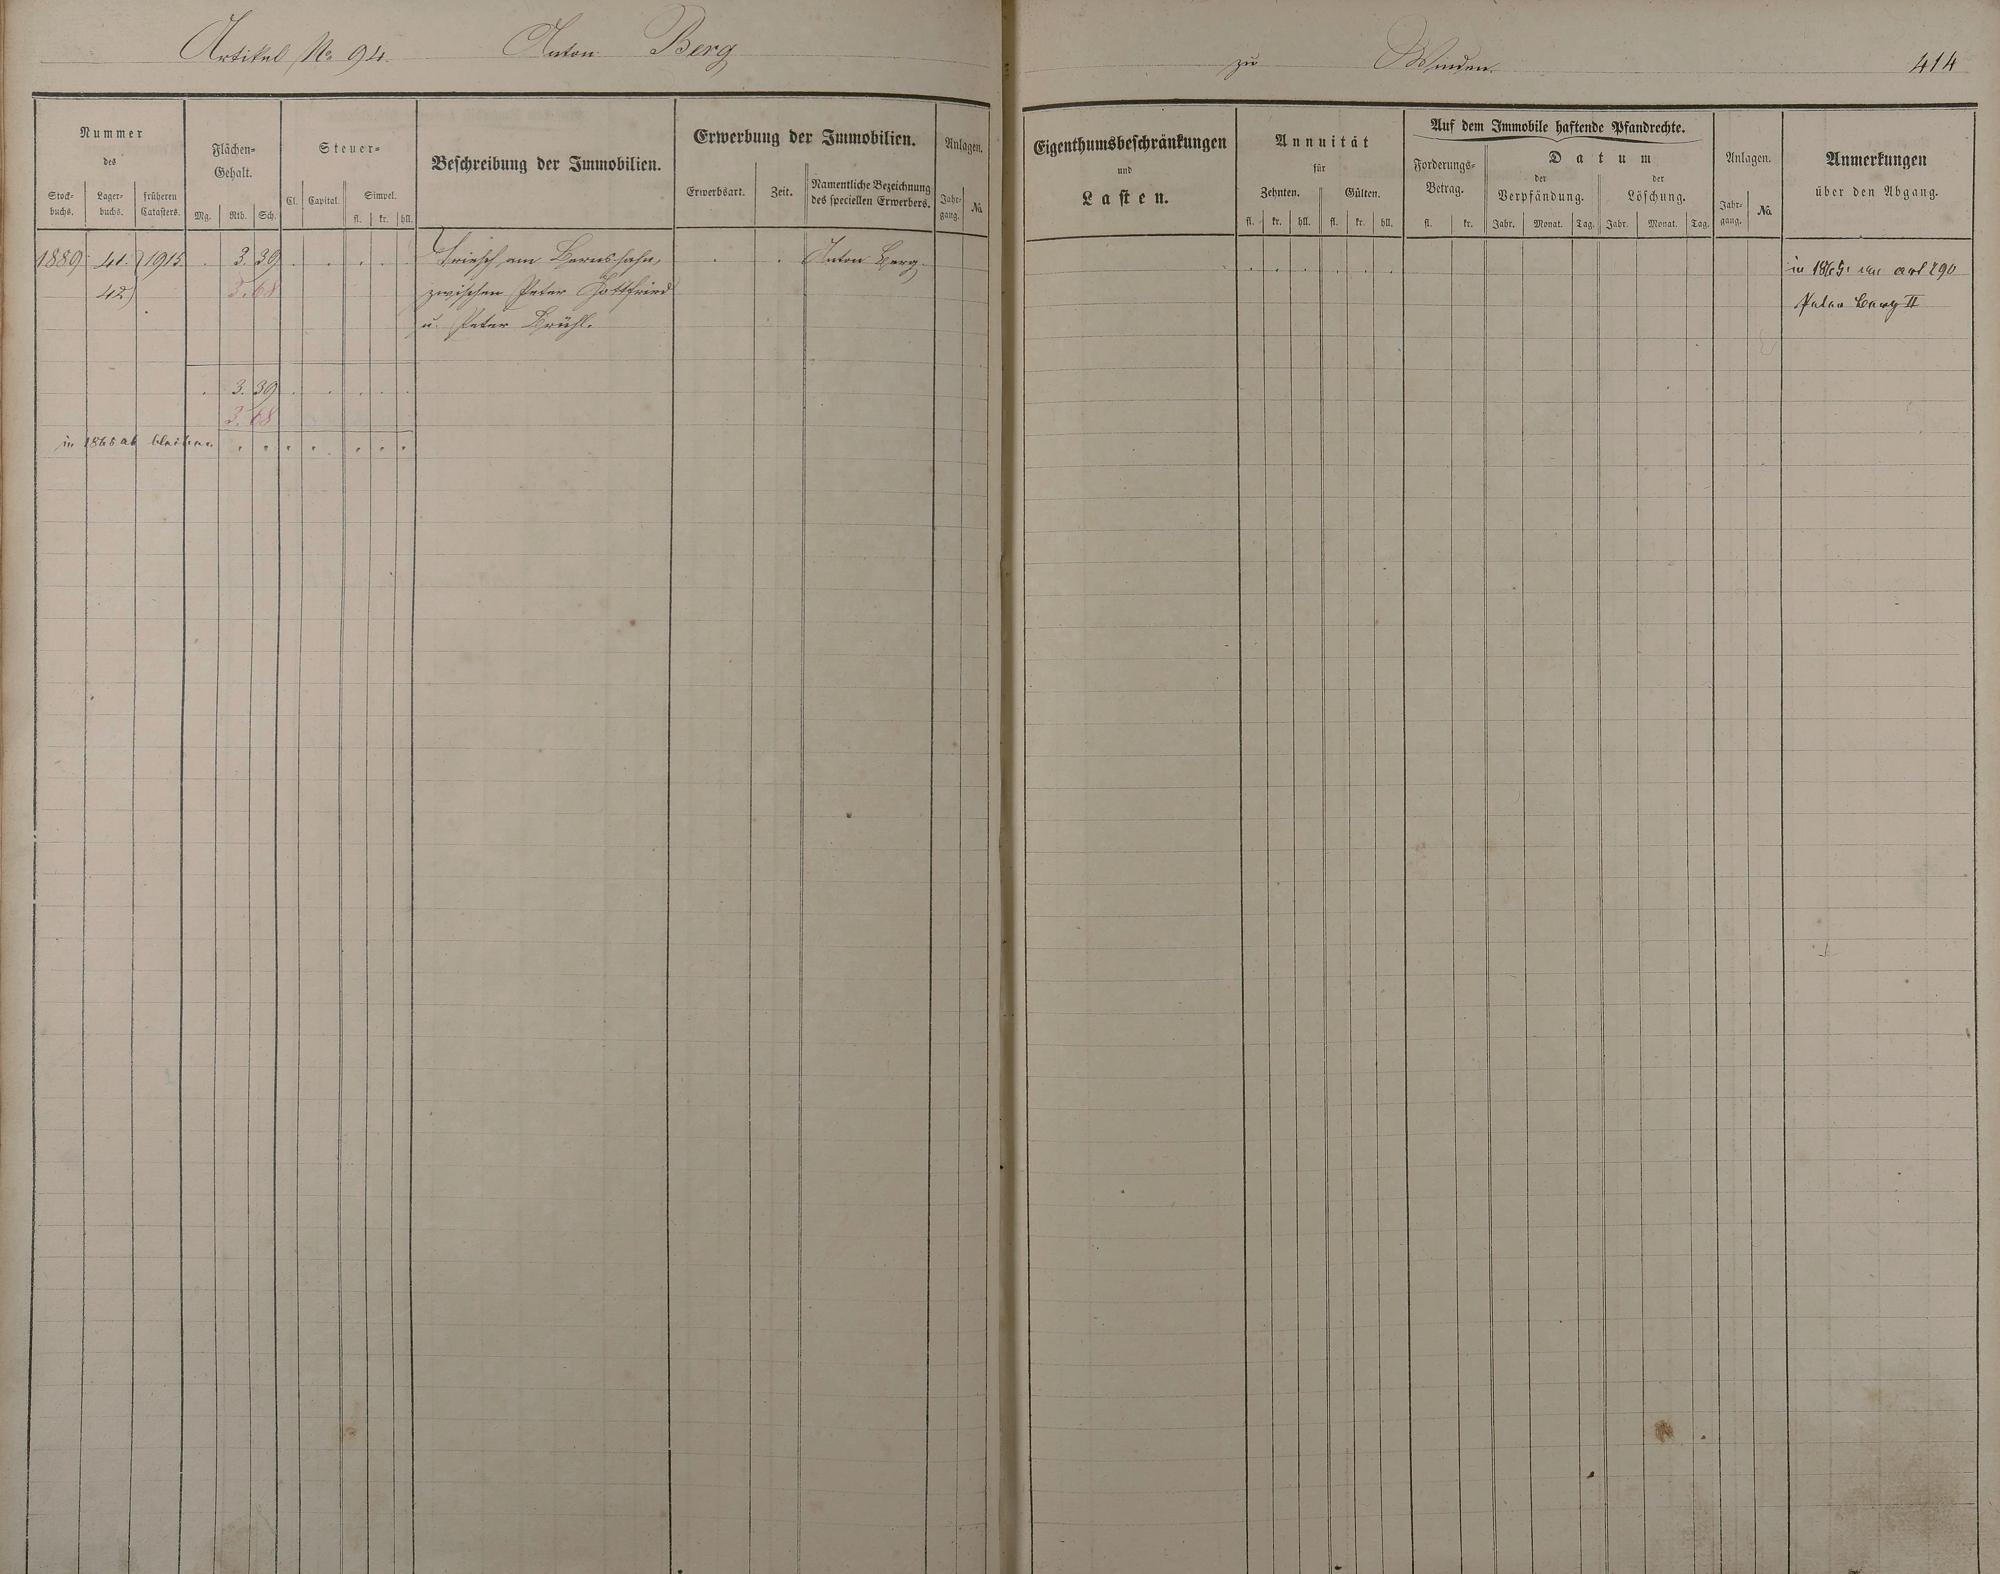 Artikel No 94. Anton Berg zu Winden. 414
Nummer
des
Stock-
buchs.
Lager-
buchs.
früheren
Catasters.
Flächen-
Gehalt.
Mg. Rth. Sch.
Steuer-
Cl. Capital. Simpel.
fl. kr. hll.
Beschreibung der Immobilien.
Erwerbung der Immobilien.
Erwerbsart. Zeit. Namentliche Bezeichnung
des speciellen Erwerbers.
Anlagen.
Jahr-
gang. No
Eigenthumsbeschränkungen
und
Lasten.
Annuität
für
Zehnten. Gülten.
fl. kr. hll. fl. kr. hll.
Auf dem Immobile haftende Pfandrechte.
Forderungs-
Betrag.
fl. kr.
Datum
der
Verpfändung.
der
Löschung.
Jahr. Monat. Tag. Jahr. Monat. Tag.
Anlagen.
Jahr-
gang. No
Anmerkungen
über den Abgang.
1889 41. 1915 . 3. 39 Triesch am Bernshahn, Anton Berg. in 1865 an art 290
42) 3. 68 zwischen Peter Gottfried Peter Berg II
u. Peter Brühl.
. 3. 39
3. 68
in 1865 ab bleiben